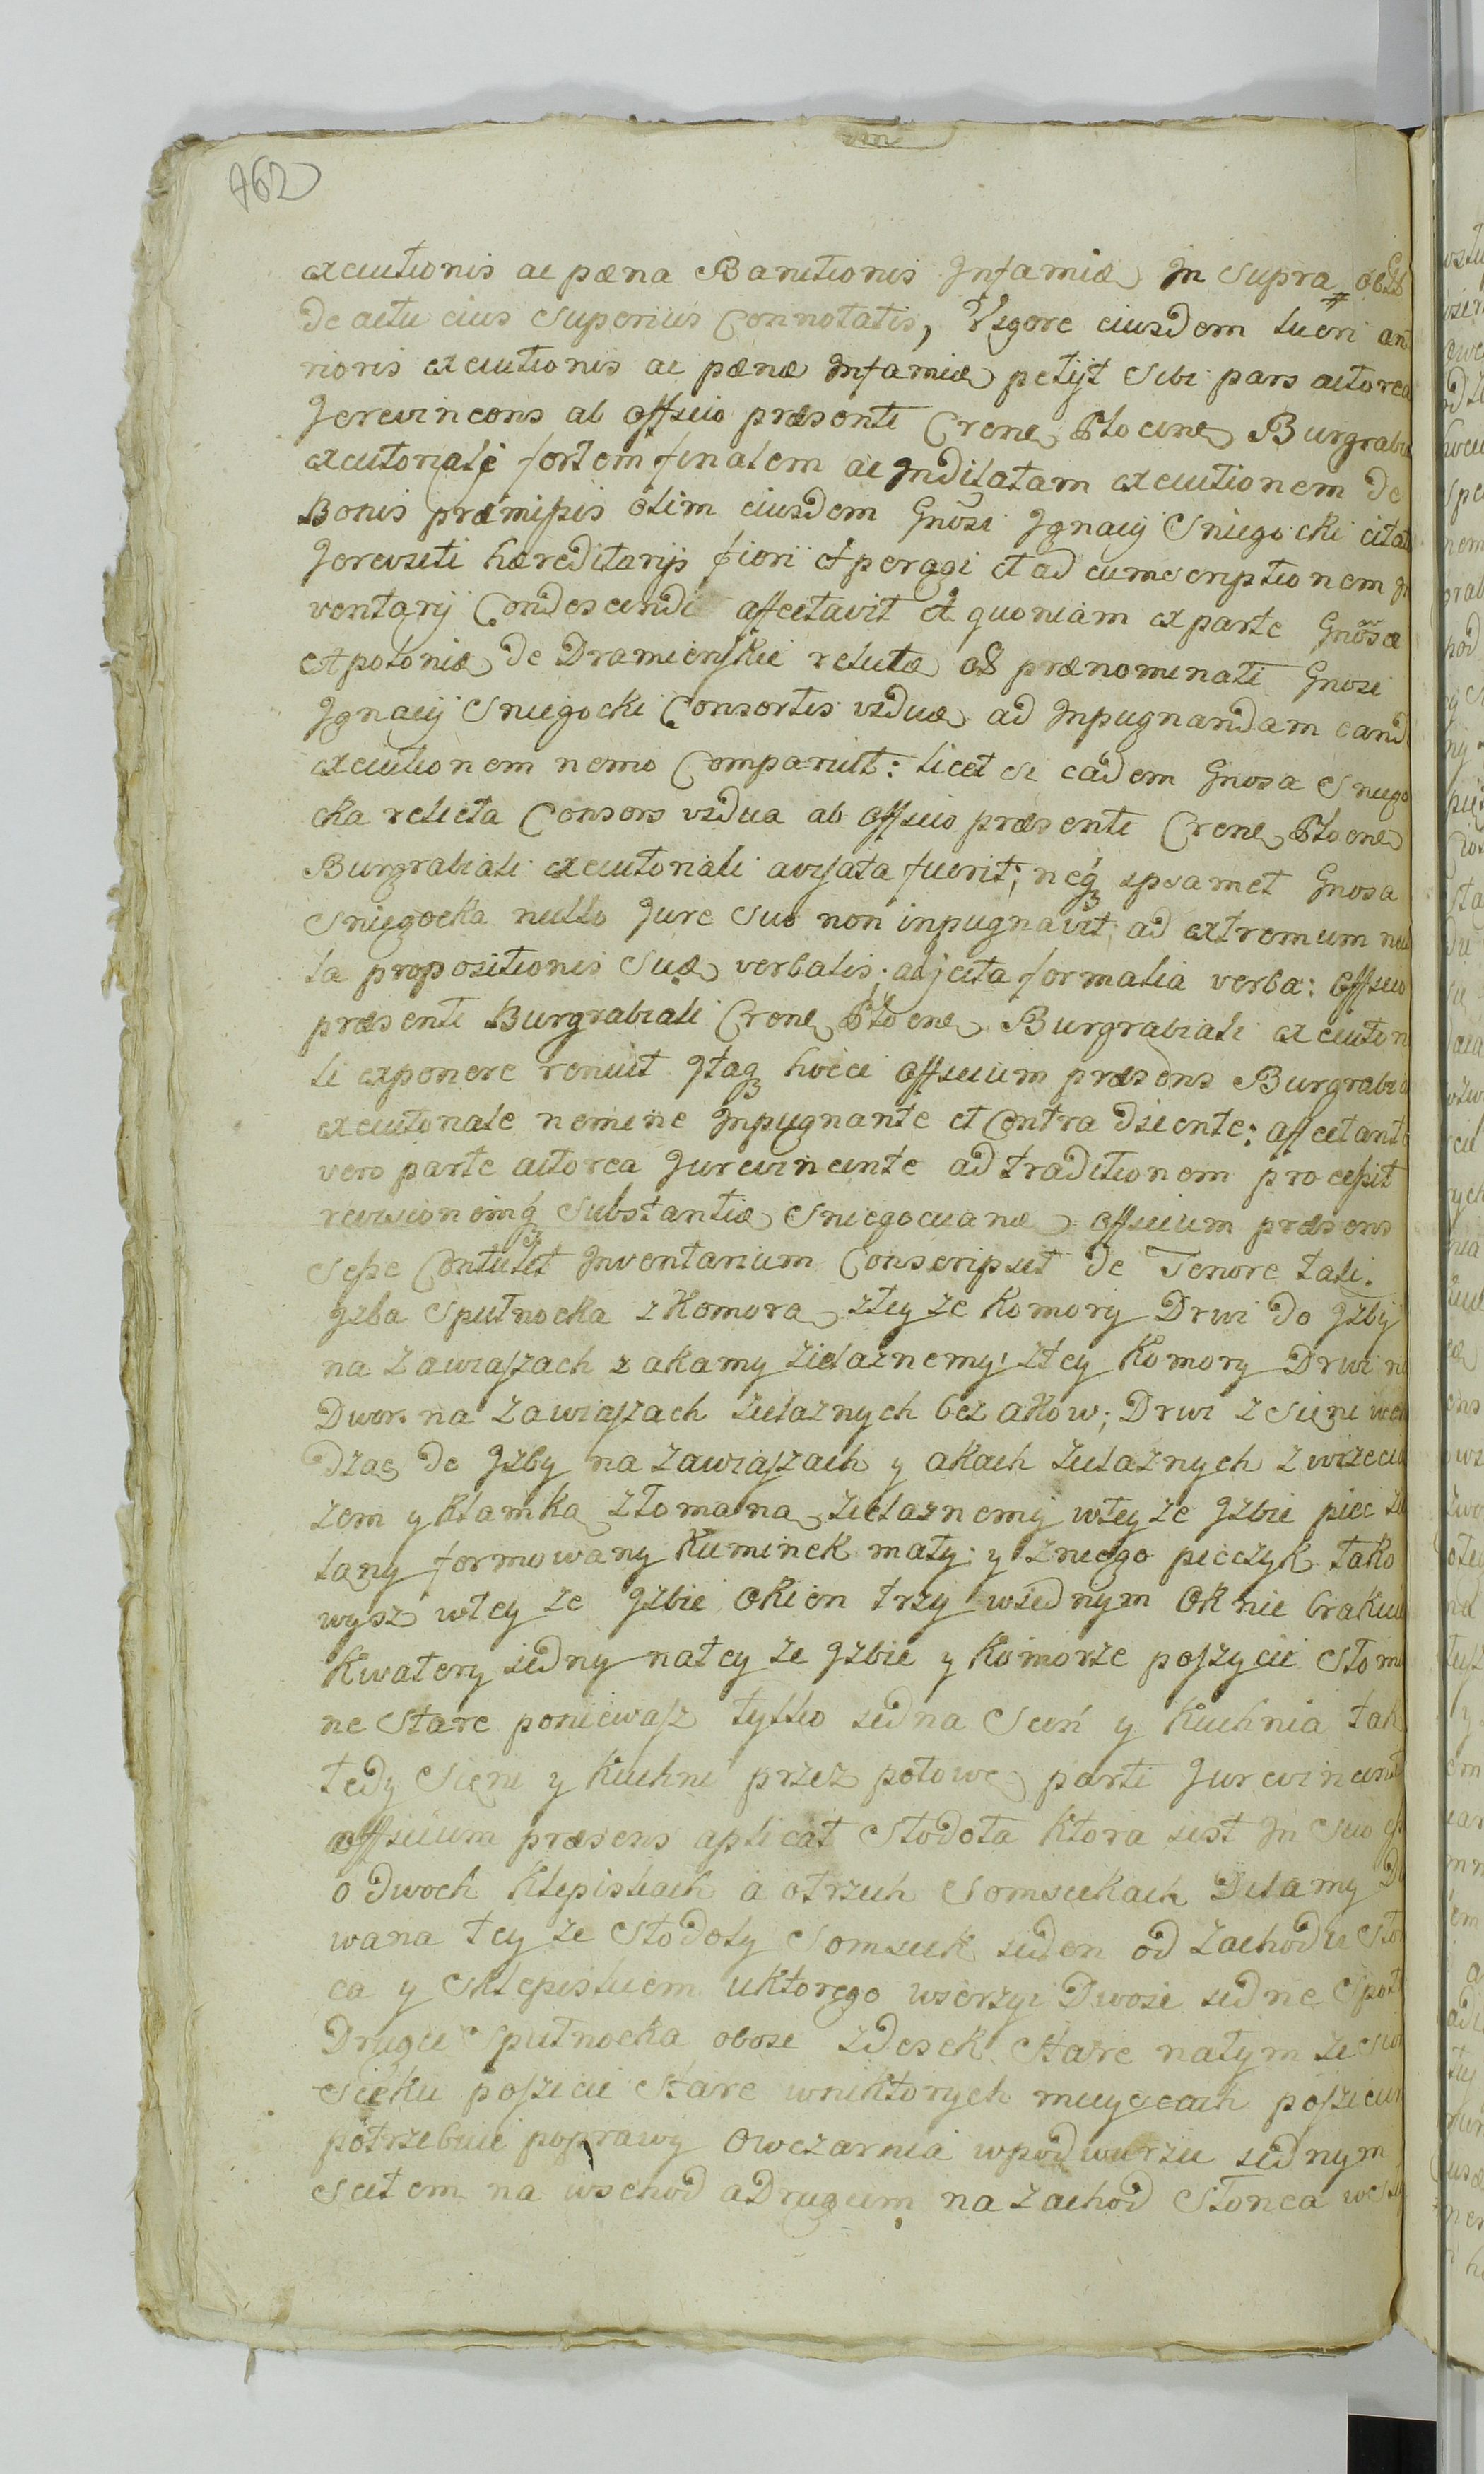 762
executionis ac pæna Banitionis Infamiæ In supra
de actu eius Superius Connotatis, Vigore eiusdem lucri an
rioris executionis ac pænæ Infamiæ petÿt Sibi pars actorea
Jurevincens ab officio præsenti Crene Plocene Burgrabi
executoriale fortem finalem ac Indilatam executionem de
Bonis præmissis olim eiusdem Gnosi Ignacÿ Sniegocki citat
Jurevicti hæreditarÿs fieri et peragi et ad eum scriptionem In
ventarÿ Condescendi affectavit et quoniam ex parte Gnosæ
Apoloniæ de Dramienskie relictæ olim prænominati Gnosi
Ignacÿ Sniegocki Consortis viduæ ad Inpugnandam eand
executionem nemo Comparuit: licet et eadem Gnosa Sniego
cka relicta Consors vidua ab officio præsenti Crene Plocne
Burgrabiali executoriali avisata fuerit; neq ipsamet Gnosa
Sniegocka nullo Jure Suo non inpugnavit, ad extremum nul
la propositionis Suæ verbalis; adjecta formalia verba: officio
præsenti Burgrabiali Crene Plocene Burgrabiali executoria
li exponere renuit Itaq hocce officium præsens Burgrabia
executoriale nemine Inpugnante et Contradicente; affectante
vero parte actorea Jurevincente ad traditionem processit
revisionemq Substantiæ Sniegocianæ officium præsens
Sese Contulit Inventarium Conscripsit de Tenore tali.
Izba Spułnocka z Komora, z tey ze Komory Drwi do Izbÿ
na zawiaszach z akamy zielaznemy; z tey Komory Drwi na
Dwor na zawiaszach zielaznych bez akow; Drwi z Sieni wcho
dząc do Izby na zawiaszach y akach zielaznych z wrzecią
zem y Klamka złomana zielaznemÿ w tey ze Izbie piec zie
lany formowany Kuminek mały y z niego pieczyk tako
wysz w tey ze Izbie okien trzy w iednym oknie brakuie
Kwatery iedny na tey ze Izbie y Komorze poszycie słomia
ne Stare poniewasz tylko iedna Sień y Kuchnia tak
tedy Sieni y Kuchni przez połowe parti Jurevincenti
officium præsens aplicat Stodoła ktora iest In Suo esse
o dwoch Klepiskach a o trzech Somsiekach Dilamy
wana tey ze Stodoły Somsiek ieden od zachodu Słon
ca y Sklepiskiem u ktorego wierzyi Dwoie iedne Społ
Drugie Spułnocka oboie z desek Stare na tym ze
Sieku poszicie Stare w niktorych mieyscach poszicie
potrzebuie poprawy Owczarnia w podwurzu iednym
Scitem na wschod a Drugiem na zachod Słonca